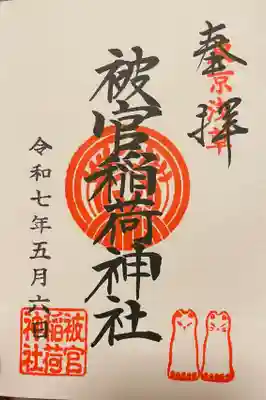 奉拝
東京浅草
被官稲荷神社
令和七年五月六日
被官
稲荷
神社